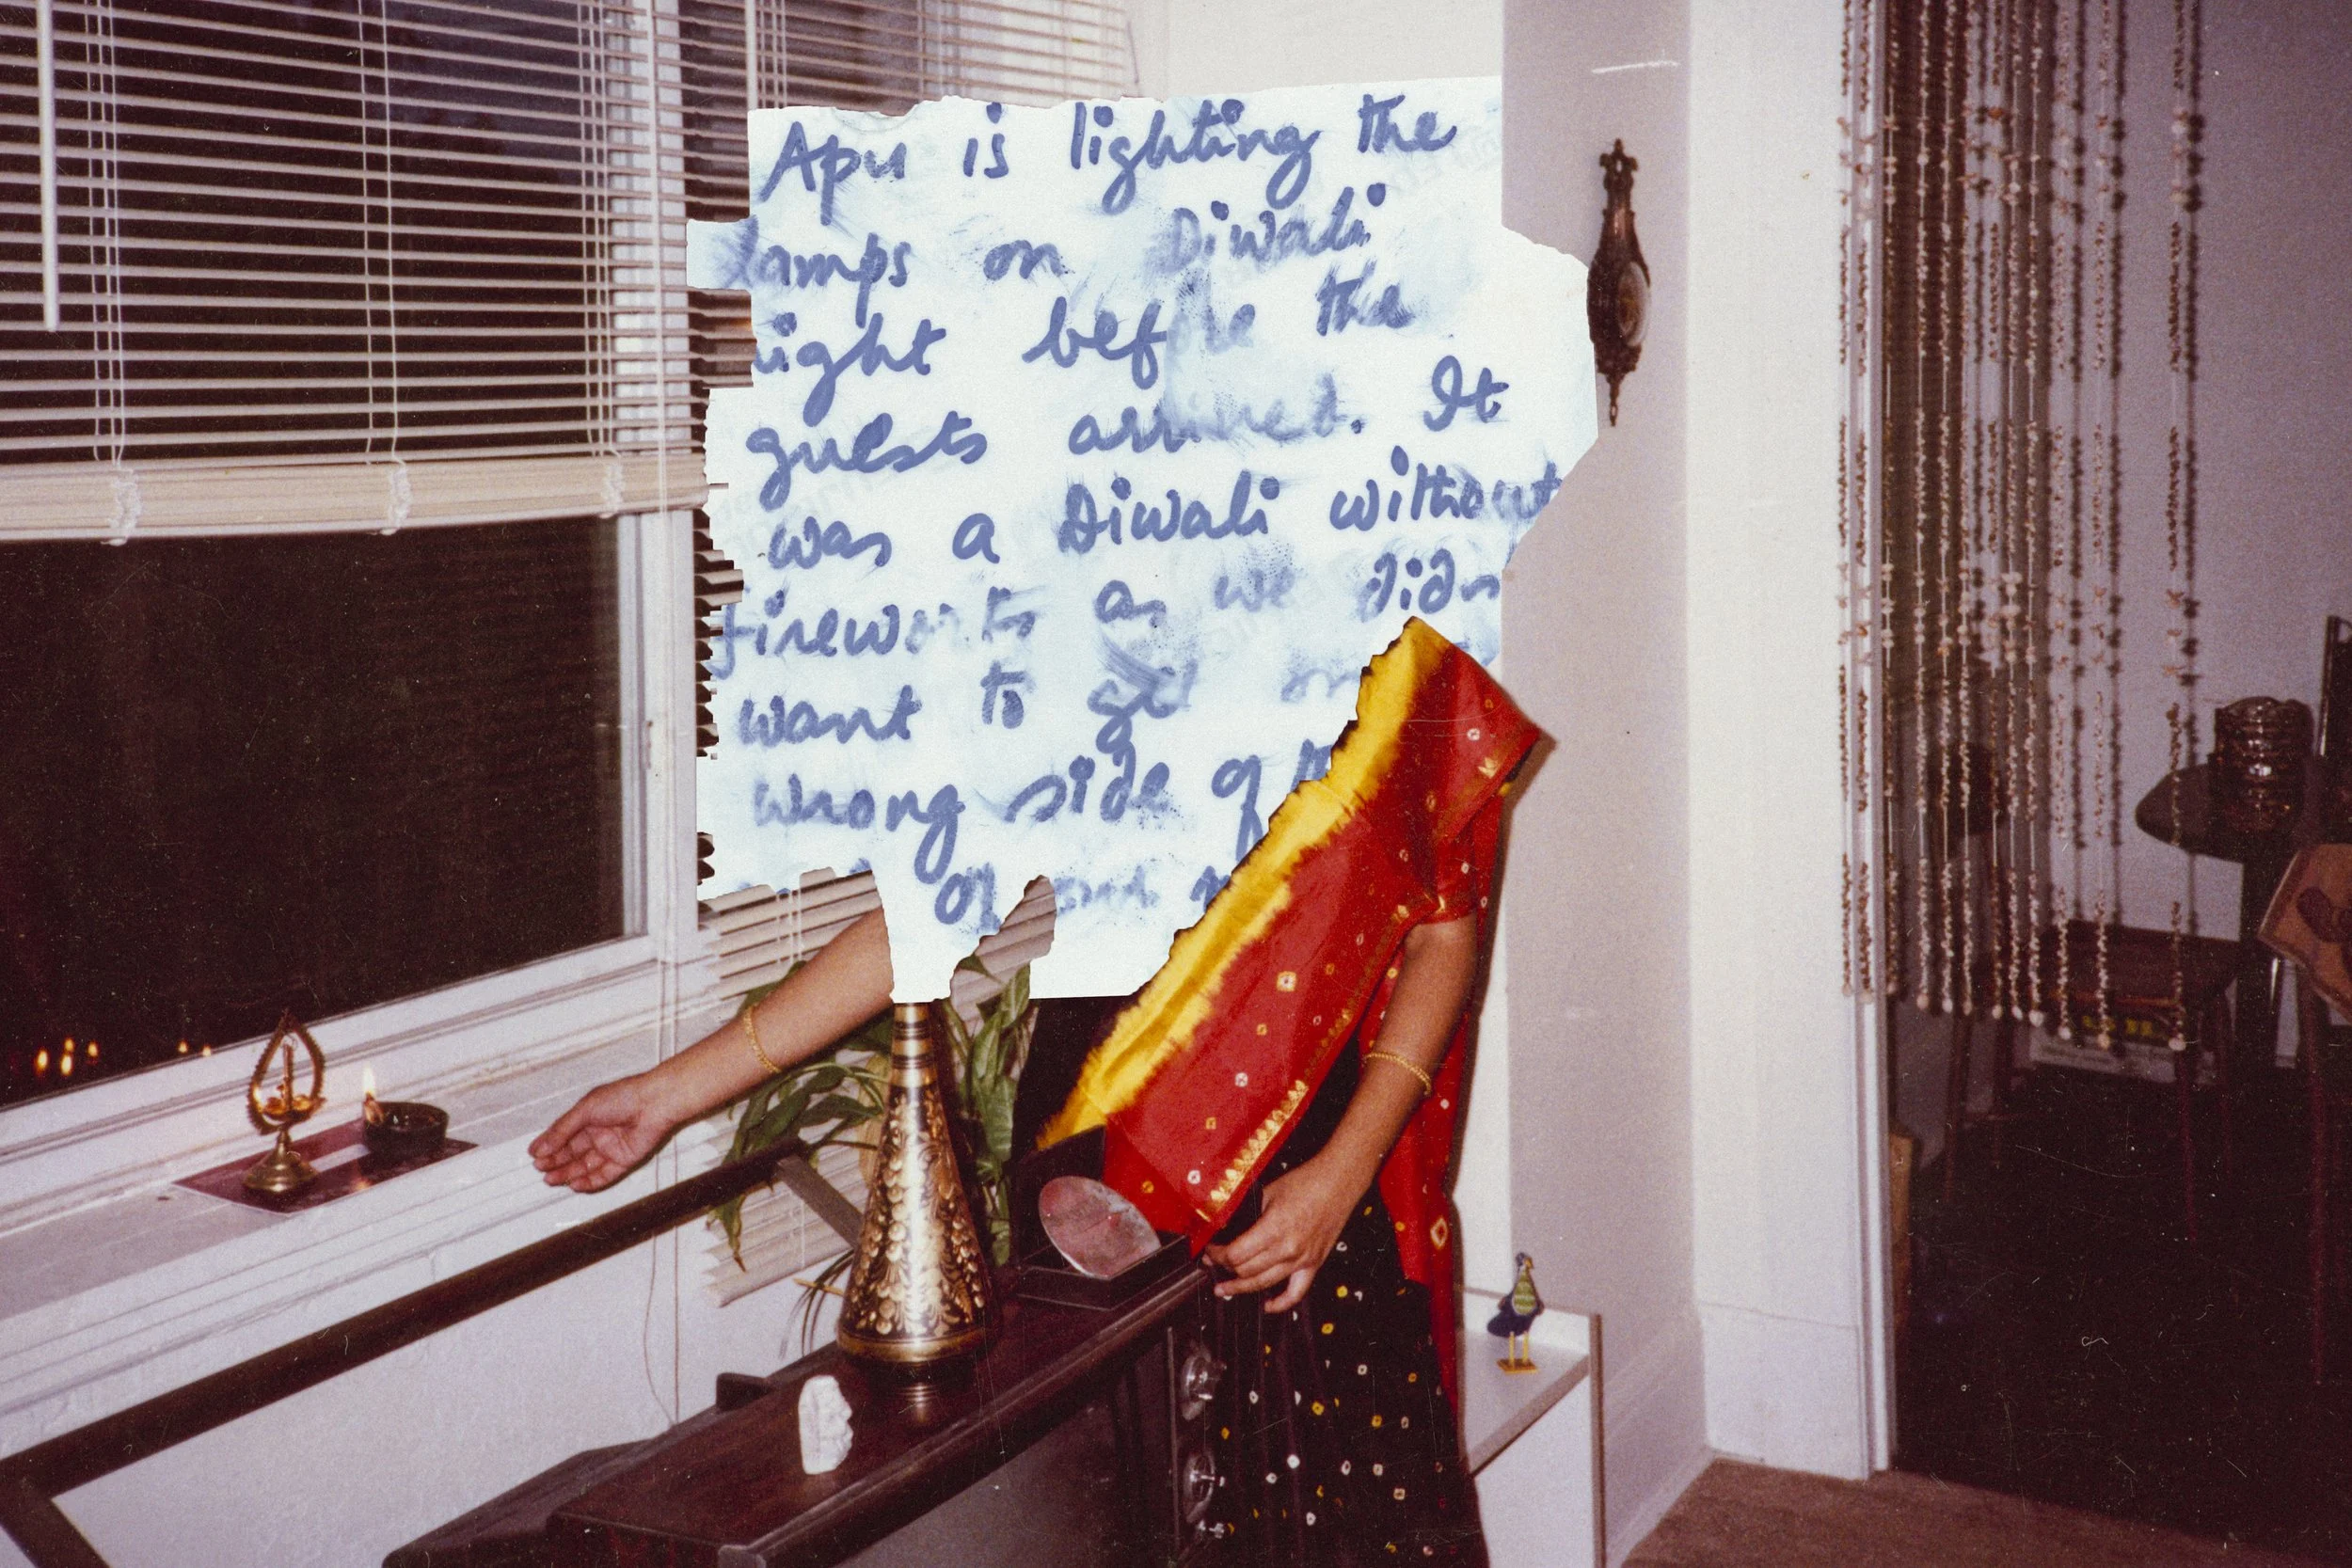 Apu is lighting the
lamps on Diwali
night before the
guests arrived. It
was a Diwali without
fireworks as we didn
want to get on
wrong side of
of